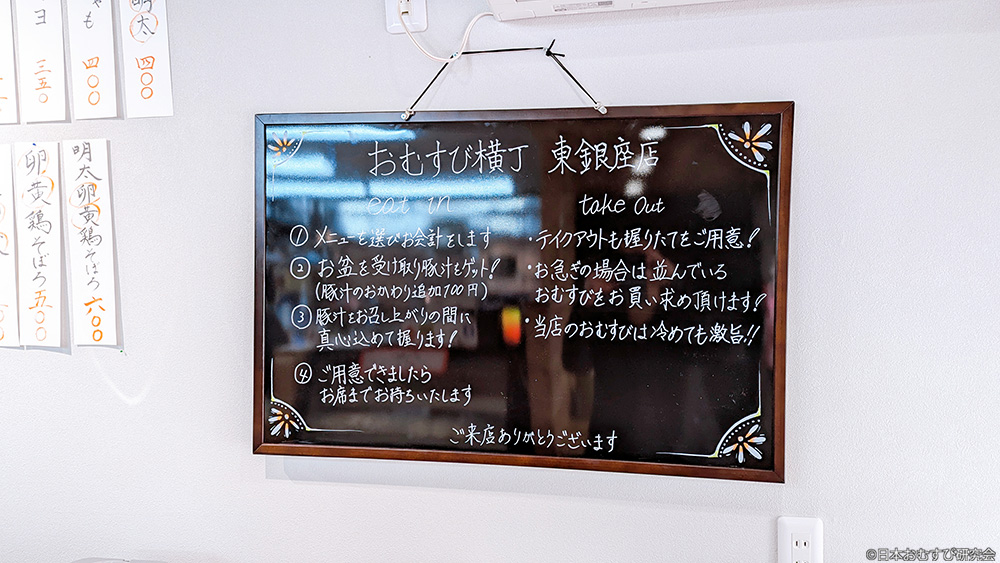 明太
四〇〇
四〇〇
三五〇
明太卵黄鶏そぼろ
六〇〇
卵黄鶏そぼろ
五〇〇
おむすび横丁 東銀座店
eat in
① メニューを選びお会計をします
② お盆を受け取り豚汁をゲット!
(豚汁のおかわり追加100円)
③ 豚汁をお召し上がりの間に
真心込めて握ります!
④ ご用意できましたら
お席までお持ちいたします
take out
・テイクアウトも握りたてをご用意!
・お急ぎの場合は並んでいる
おむすびをお買い求め頂けます!
・当店のおむすびは冷めても激旨!!
ご来店ありがとうございます
©日本おむすび研究会